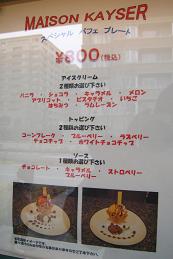 MAISON KAYSER
スペシャル パフェ プレート
¥800(税込)
アイスクリーム
2種類お選び下さい
バニラ ・ ショコラ ・ キャラメル ・ メロン
アプリコット ・ ピスタチオ ・ いちご
はちみつ ・ ラムレーズン
トッピング
2種類お選び下さい
コーンフレーク ・ ブルーベリー ・ ラズベリー
チョコチップ ・ ホワイトチョコチップ
ソース
1種類お選び下さい
チョコレート ・ キャラメル ・ ストロベリー
ブルーベリー